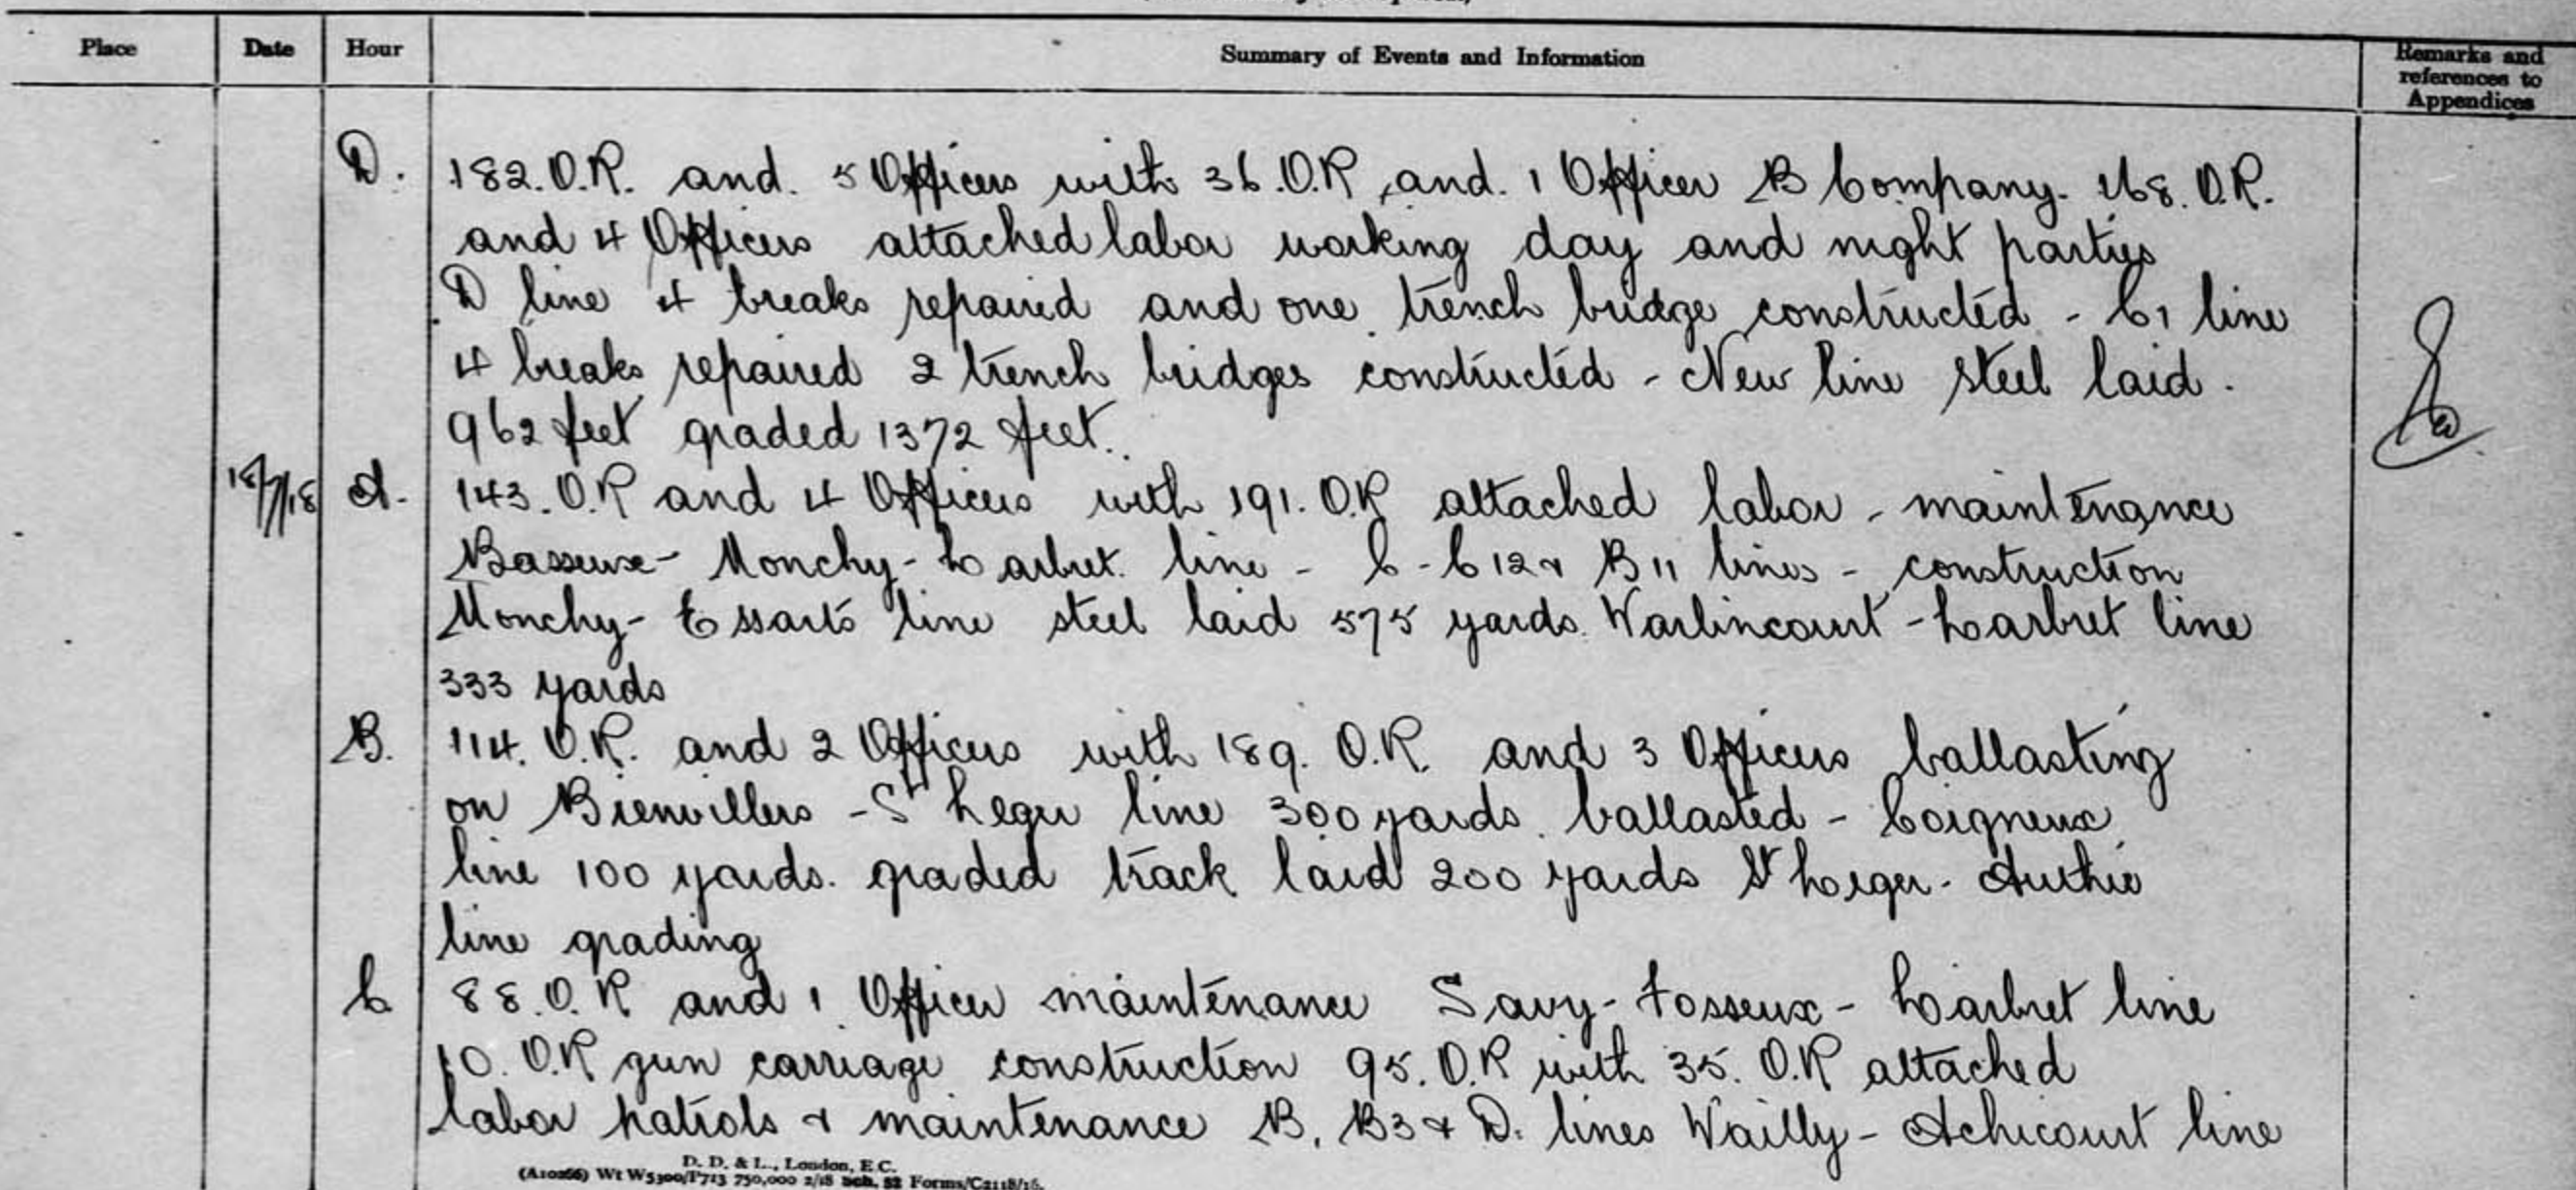 Place Date Hour Summary of Events and Information Remarks and references to Appendices
D. 182. O.R. and. 5 Officers with 36. O.R. and. 1 Officer B Company. 168. O.R.
and 4 Officers attached labor working day and night parties
D line 4 breaks repaired and one trench bridge constructed - C1 line
4 breaks repaired 2 trench bridges constructed - New line steel laid.
962 feet graded 1372 feet.
18/7/18 A. 143. O.R and 4 Officers with 191. O.R attached labor - maintenance
Basseux - Monchy - Larbret line - C - C12 & B11 lines - construction
Monchy - Essarts line steel laid 575 yards. Warlincourt - Larbret line
333 yards
B. 114. O.R. and 2 Officers with 189. O.R. and 3 Officers ballasting
on Bienvillers - St Leger line 300 yards. ballasted - Coigneux
line 100 yards. graded track laid 200 yards St Leger - Authie
line grading
C 88. O.R and 1 Officer maintenance Savy - Fosseux - Larbret line
10. O.R gun carriage construction 95. O.R with 35. O.R attached
labor patrols & maintenance B, B3 & D. lines Wailly - Achicourt line
D. D. & L., London, E.C.
(A10266) Wt W5300/P713 750,000 2/18 Sch. 52 Forms/C2118/16.